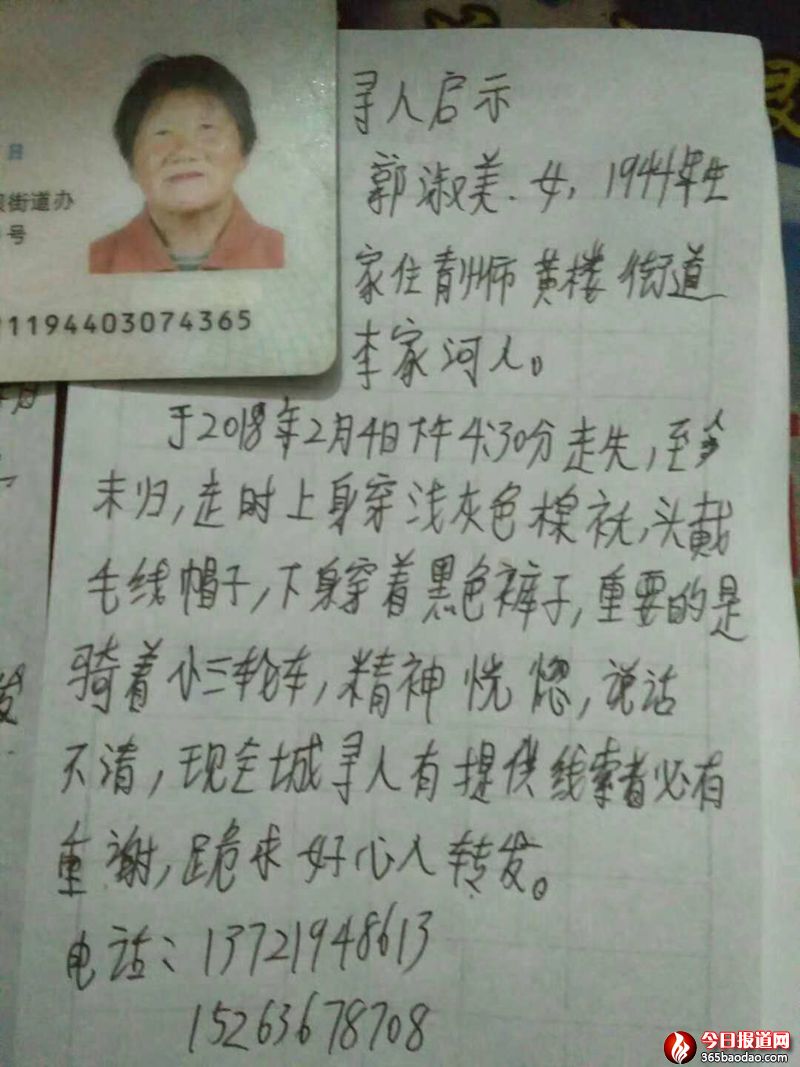 日
街道办
号
1194403074365
寻人启示
郭淑美.女，1944年生
家住青州市黄楼街道
李家河人。
于2018年2月4日下午4:30分走失，至今
未归，走时上身穿浅灰色棉袄，头戴
毛线帽子，下身穿着黑色裤子，重要的是
骑着小三轮车，精神恍惚，说话
不清，现全城寻人有提供线索者必有
重谢，跪求好心人转发。
电话：13721948613
15263678708
今日报道网
365baodao.com